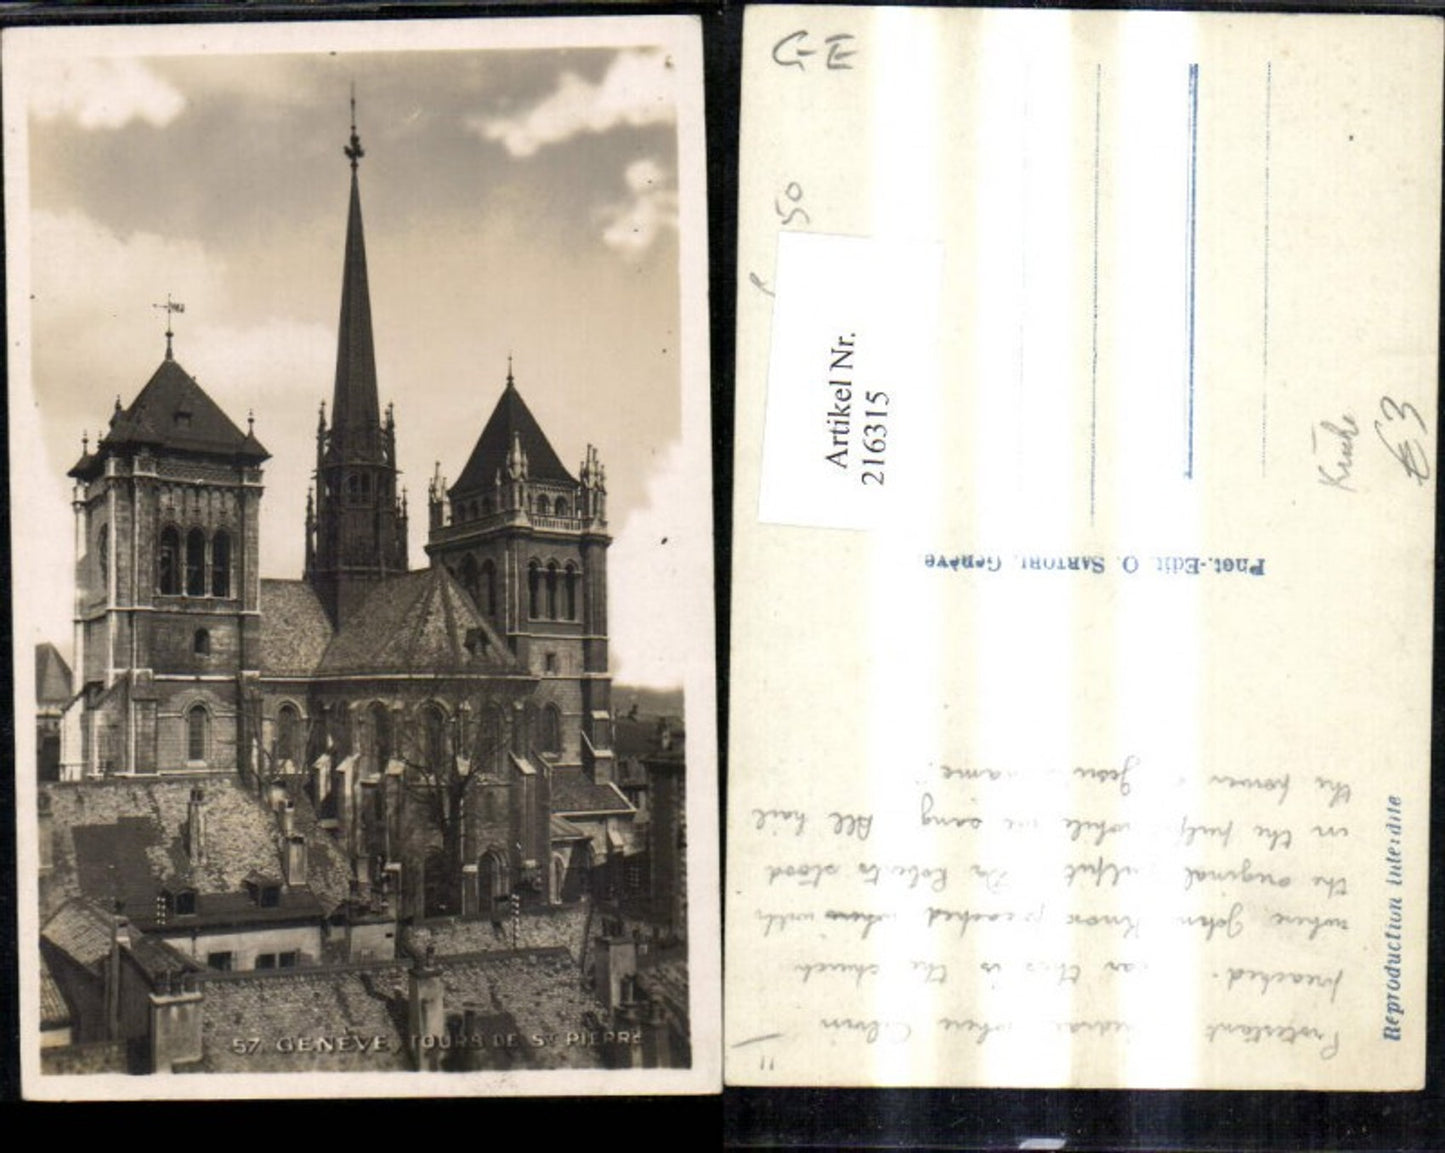 57. GENÈVE, TOURS DE ST PIERRE
GE
50
Artikel Nr.
216315
Kirche
€3
Phot.-Edit. O. SARTORI, Genève
Reproduction interdite
11
Protestant where Calvin
preached. this is the church
where John Knox preached with
the original Dr Roberts stood
in the while we sang All hail
the power Jesu name."